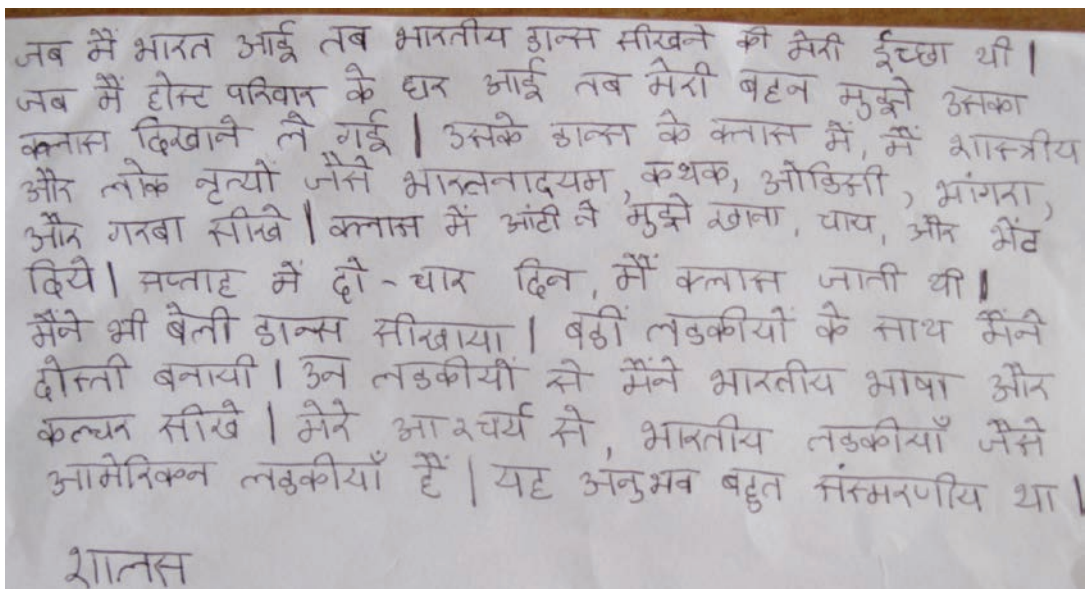 जब मैं भारत आई तब भारतीय डान्स सीखने की मेरी ईच्छा थी |
जब मैं होस्ट परिवार के घर आई तब मेरी बहन मुझे उसका
क्लास दिखाने ले गई | उसके डान्स के क्लास में, मैं शास्त्रीय
और लोक नृत्यों जैसे भारतनाट्यम, कथक, ओडिसी, भांगरा,
और गरबा सीखे | क्लास में आंटी ने मुझे खाना, चाय, और भेंट
दिये | सप्ताह में दो-चार दिन, मैं क्लास जाती थी |
मैंने भी बेली डान्स सीखाया | बडीं लडकीयों के साथ मैंने
दोस्ती बनायी | उन लडकीयों से मैंने भारतीय भाषा और
कल्चर सीखे | मेरे आश्चर्य से, भारतीय लडकीयाँ जैसे
आमेरिकन लडकीयाँ हैं | यह अनुभव बहुत संस्मरणीय था |
शालस